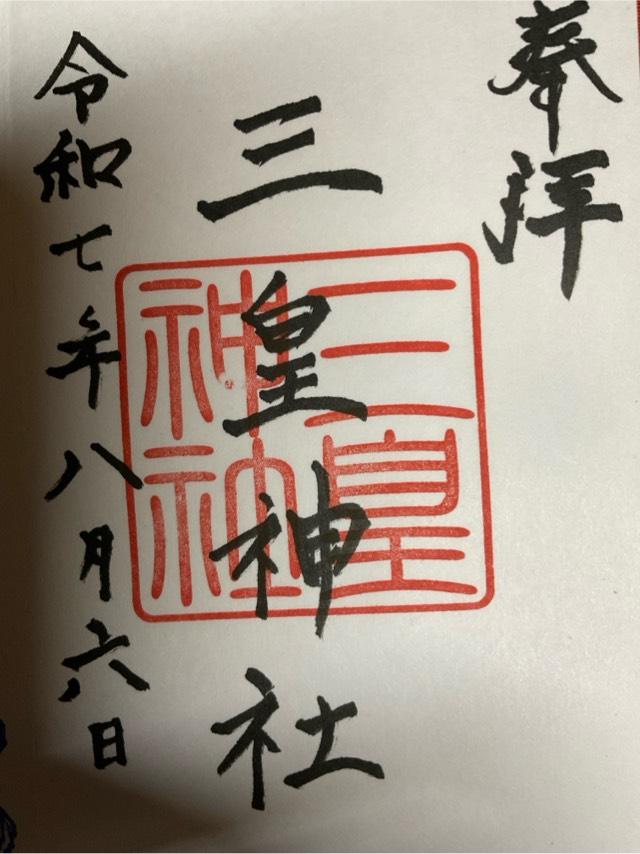 奉拝
三皇神社
三皇神社
令和七年八月六日